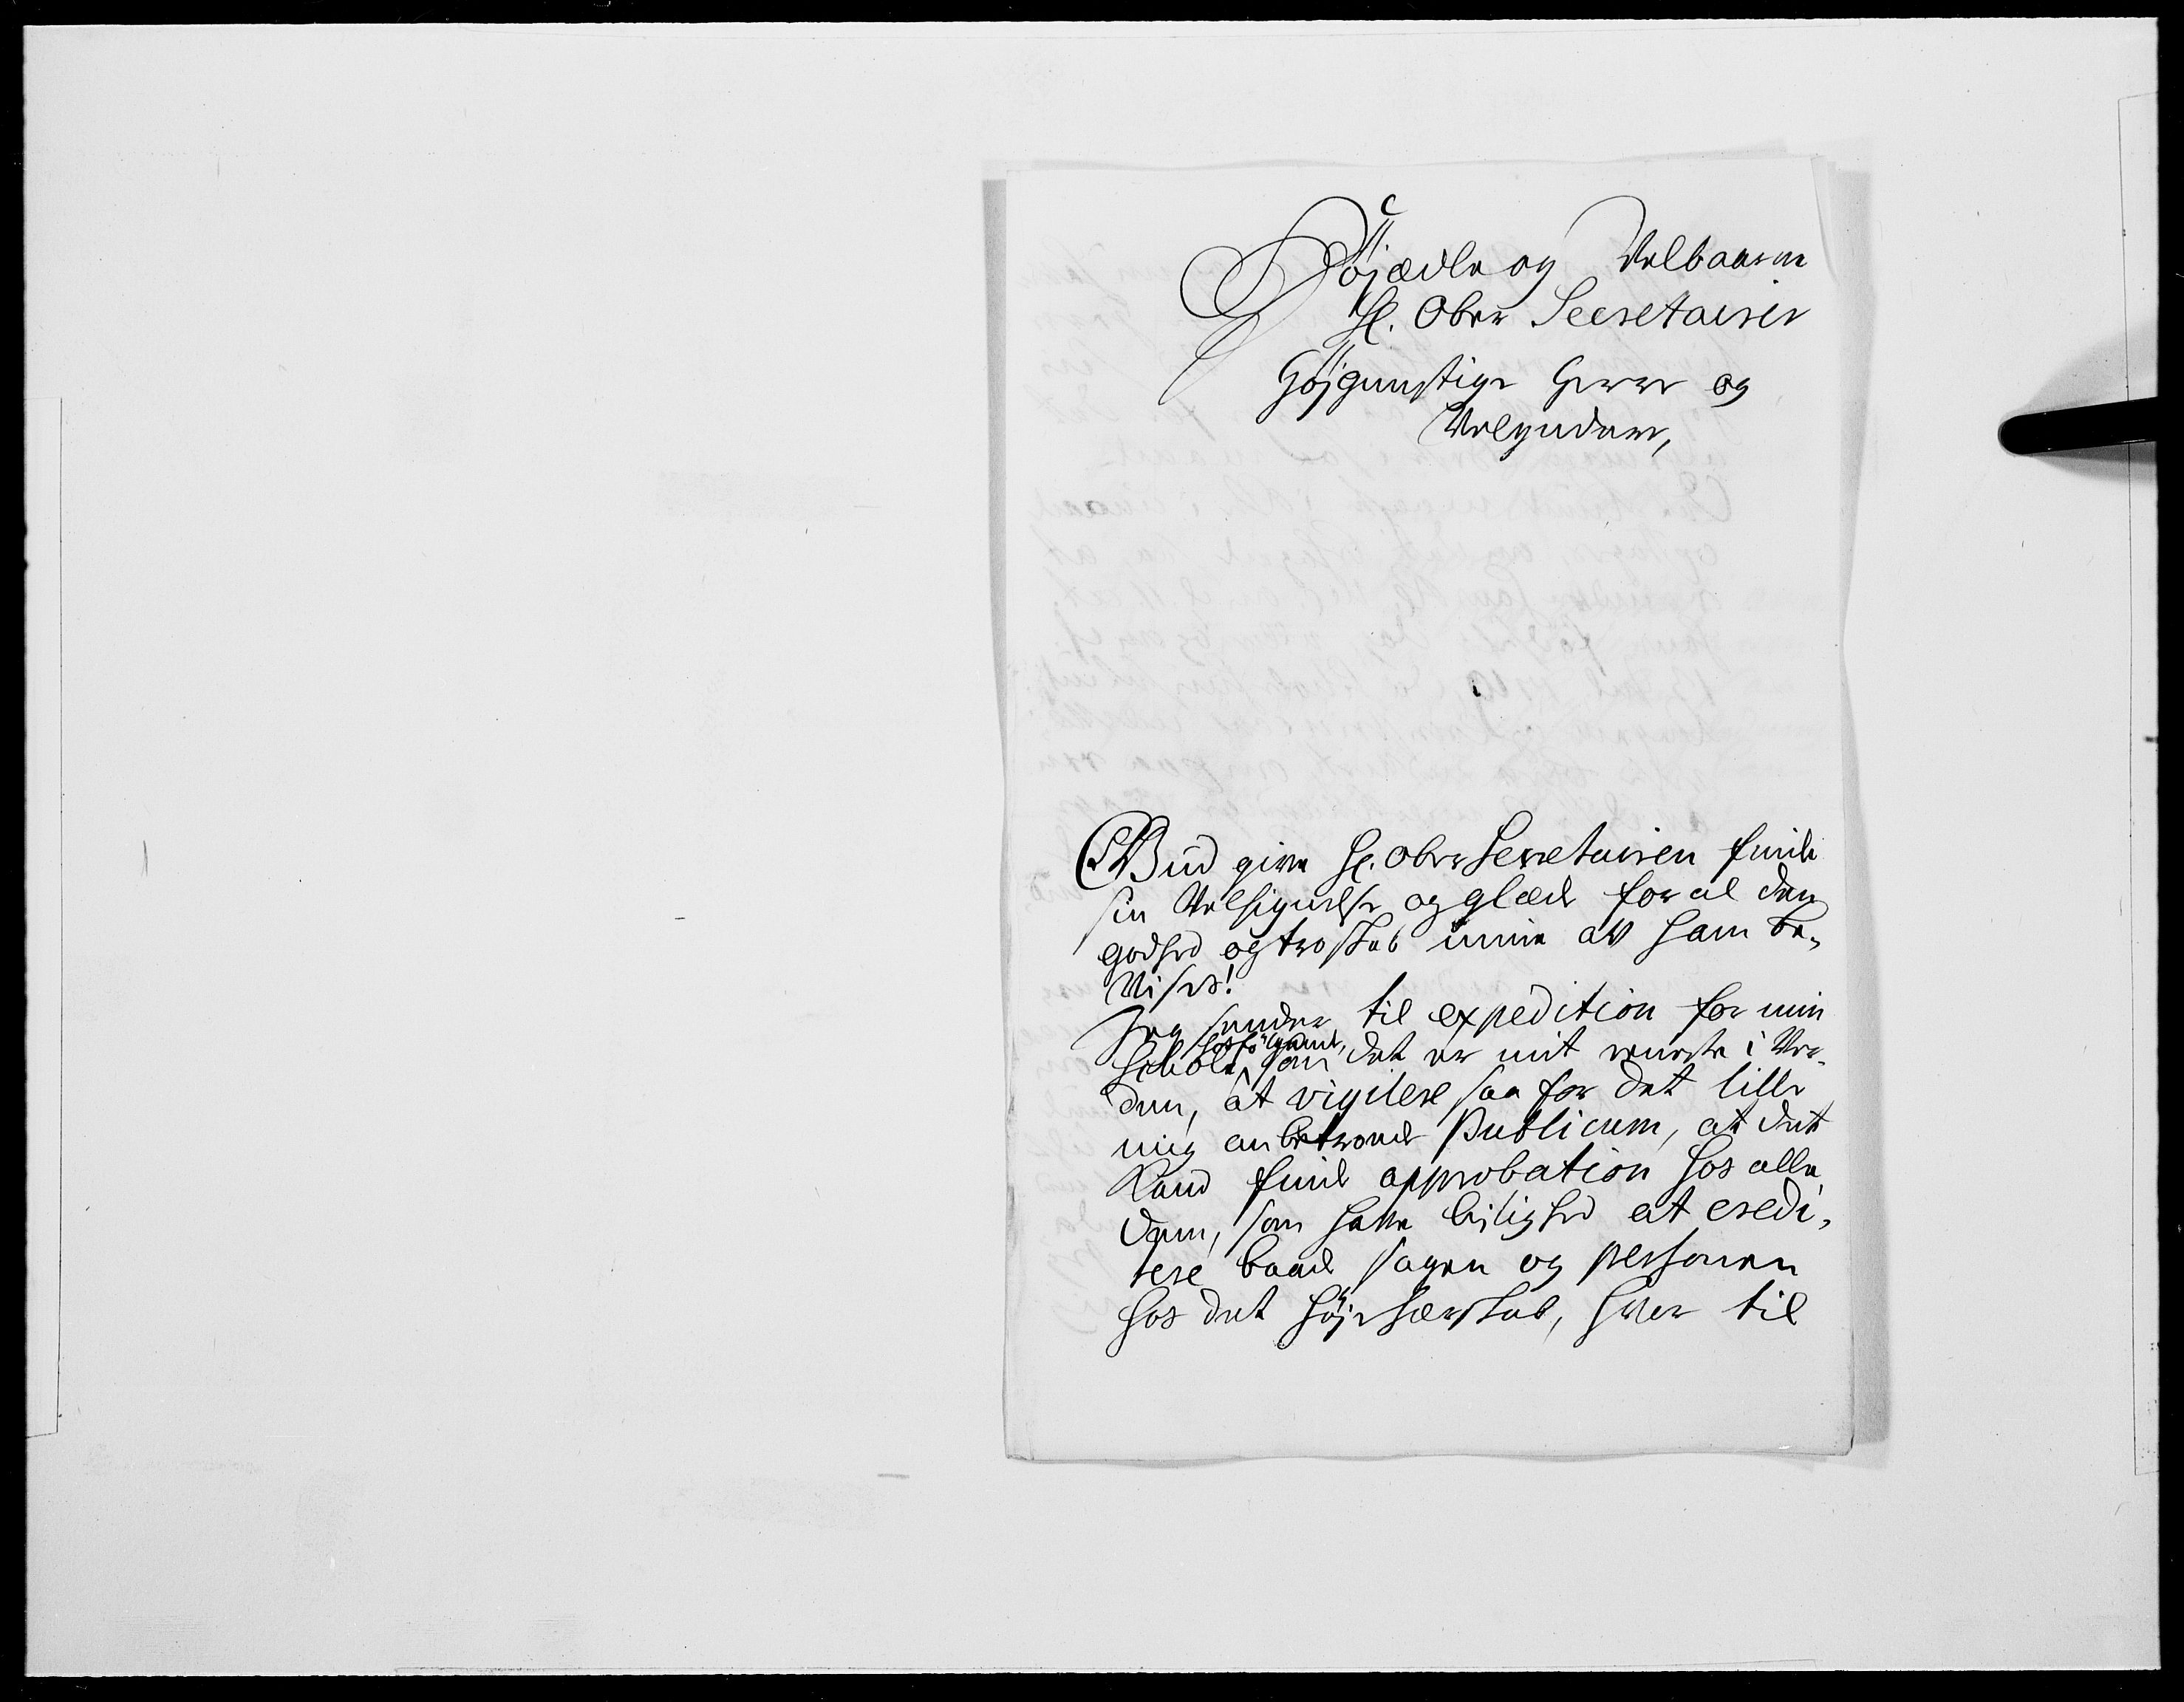 Höjædle og Velbaarne
Hr. Ober Secretairer
Höjgunstige Herre og
Velyndere,
Gud give Hr. Ober Secretairen sinde
sin Velsignelse og glæde for al den
godhed og troskab unne at ham be„
vises!
Jeg sender til expedition for min
hosfölgende,
Schole, som det er mit eneste i Ver„
den, at vigilere saa for det lille
mig anbetroede Publicum, at det
Kand finde approbation hos alle
dem, som have leilighed at credi„
tere baade sagen og personen
hos det höje herskab, hver til